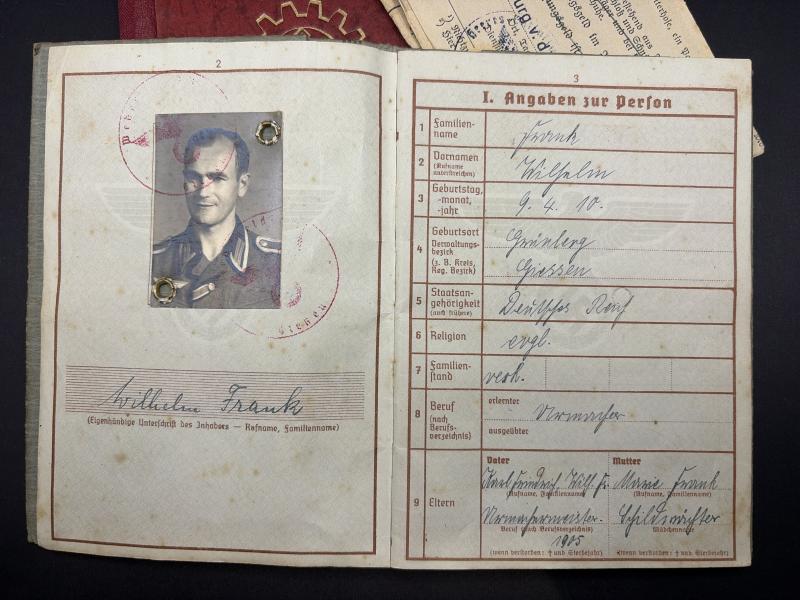 2
Wilhelm Frank
(Eigenhändige Unterschrift des Inhabers — Rufname, Familienname)
3
I. Angaben zur Person
1 Familien-
name
Frank
2 Vornamen
(Rufname
unterstreichen)
Wilhelm
3 Geburtstag,
-monat,
-jahr
9. 4. 10.
4 Geburtsort
Verwaltungs-
bezirk
(z. B. Kreis,
Reg. Bezirk)
Grünberg
Giessen
5 Staatsan-
gehörigkeit
(auch frühere)
Deutsches Reich
6 Religion
evgl.
7 Familien-
stand
verh.
8 Beruf
(nach
Berufs-
verzeichnis)
erlernter
Urmacher
ausgeübter
9 Eltern
Vater
Karl Friedrich, Wilh. Fr.
(Rufname, Familienname)
Urmachermeister.
Beruf (nach Berufsverzeichnis)
1905
(wenn verstorben: † und Sterbejahr)
Mutter
Marie Frank
(Rufname, Familienname)
Schildwächter
Mädchenname
(wenn verstorben: † und Sterbejahr)